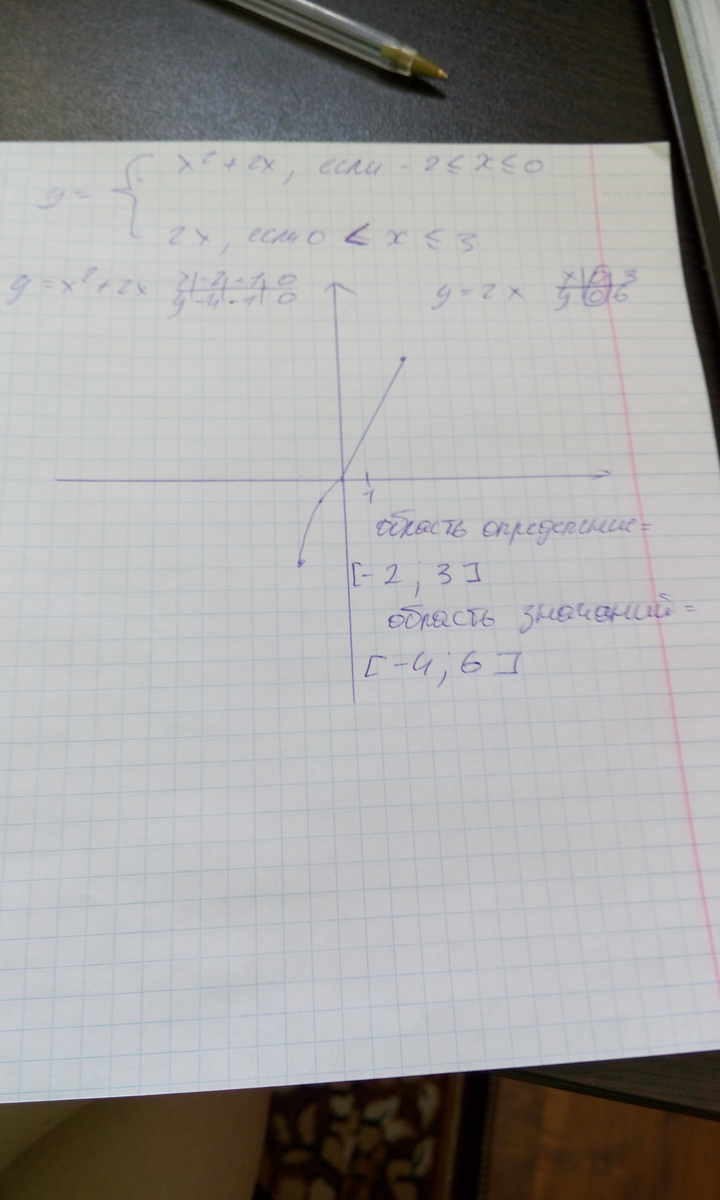 y = { x² + 2x, если -2 ≤ x ≤ 0
2x, если 0 < x ≤ 3
y = x² + 2x x | -2 | -1 | 0
y | -4 | -1 | 0
y = 2x x | 0 | 3
y | 0 | 6
1
область определение =
[-2 ; 3]
область значаний =
[-4 ; 6]